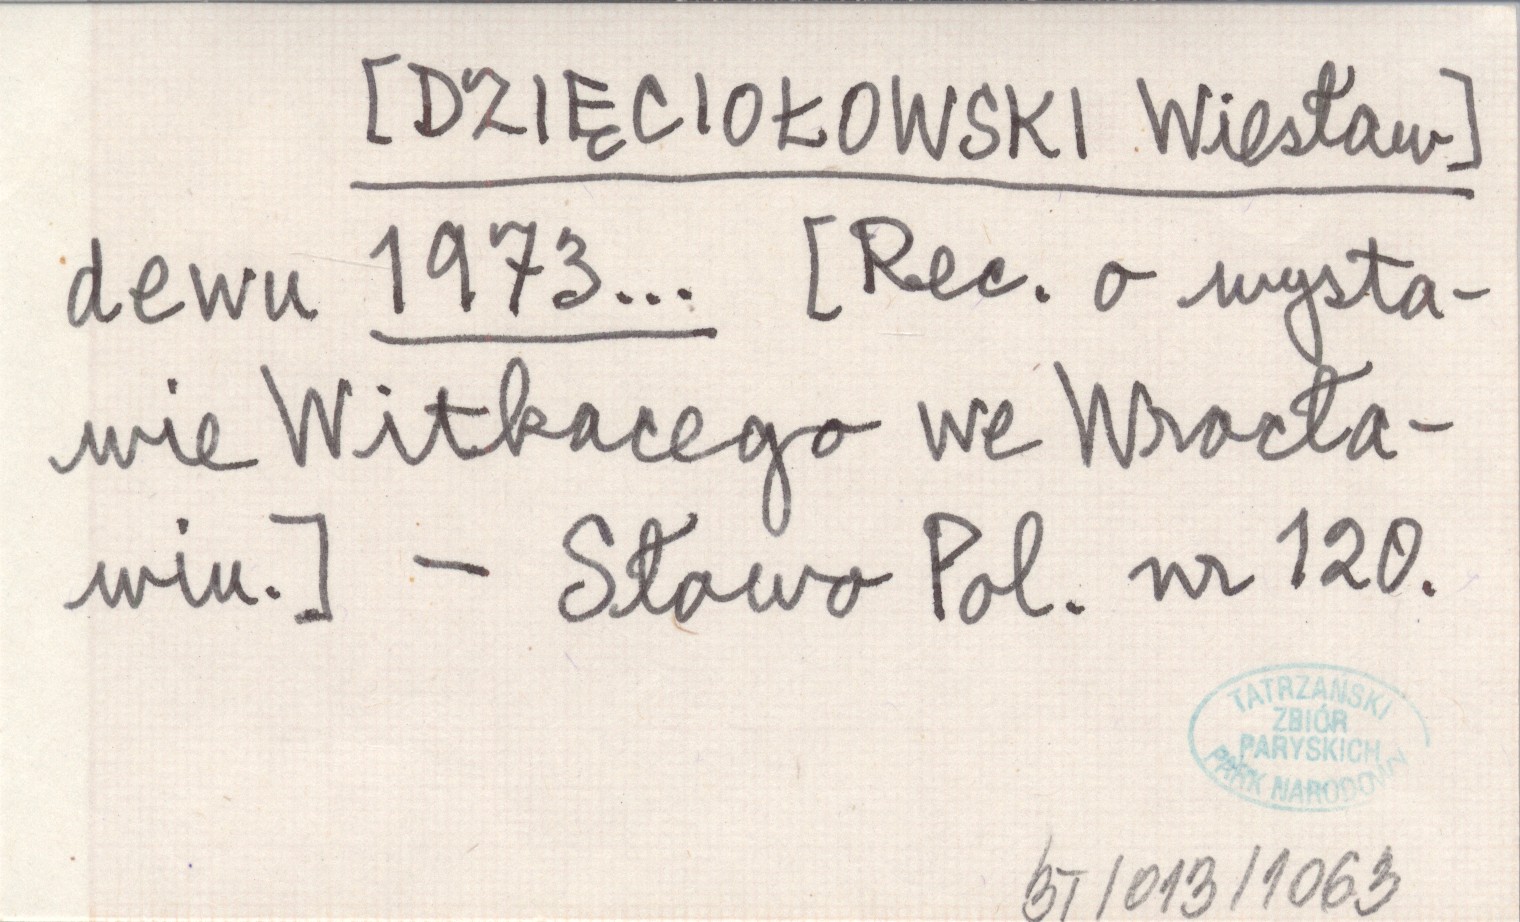 [DZIĘCIOŁOWSKI Wiesław]
dewu 1973... [Rec. o wysta-
wie Witkacego we Wrocła-
wiu.] - Słowo Pol. nr 120.
TATRZAŃSKI
ZBIÓR
PARYSKICH
PARK NARODOWY
BT/013/1063